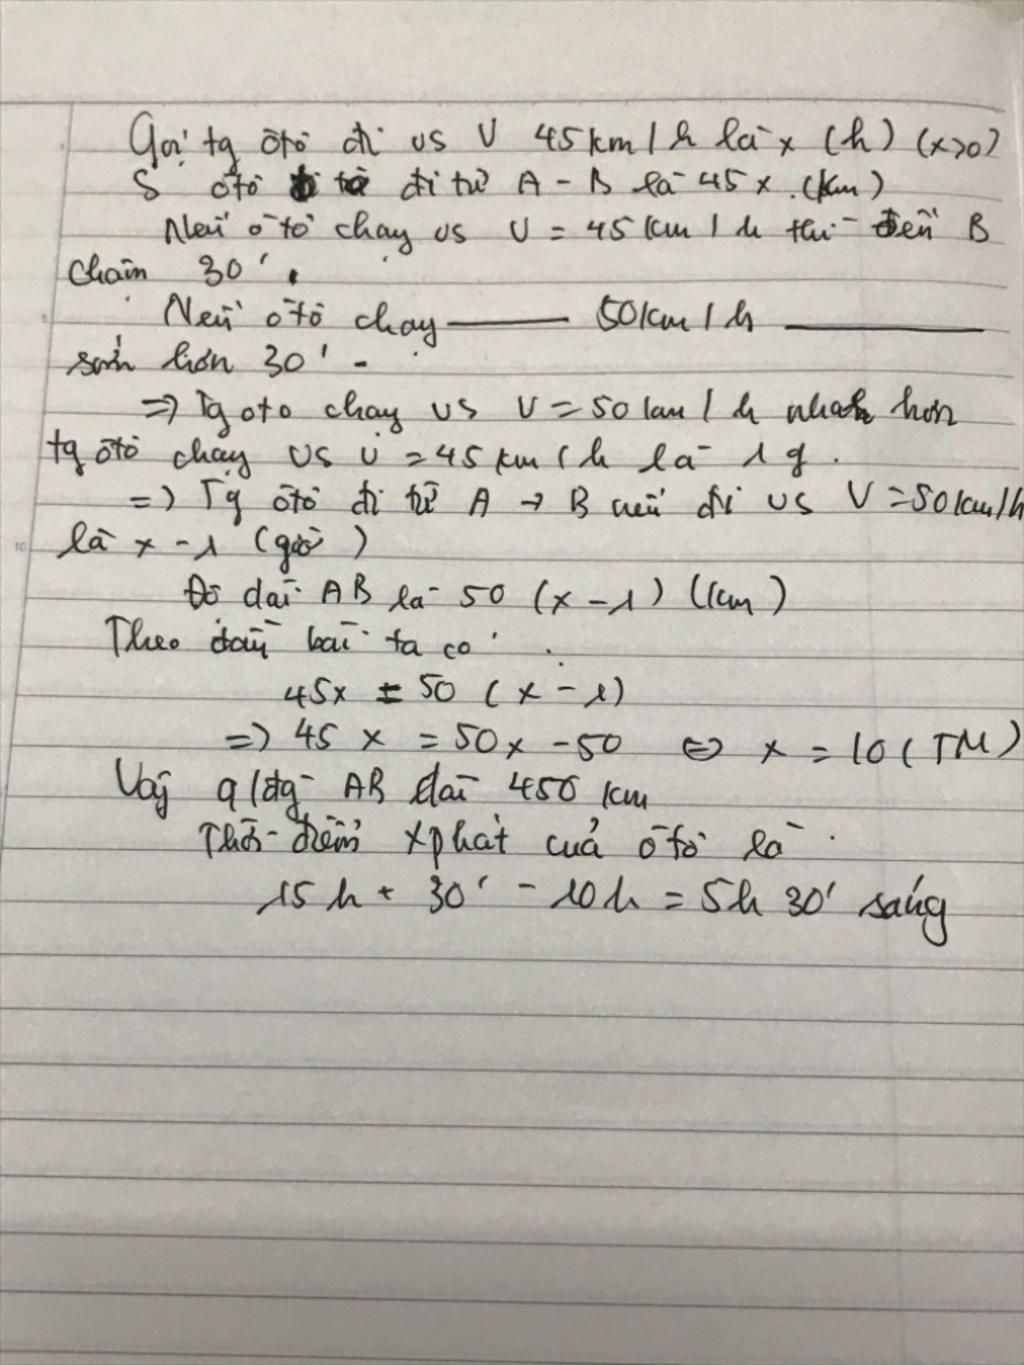 Gọi tg ôtô đi vs V 45km/h là x (h) (x>0)
S ôtô đi từ A - B là 45x (km)
Nếu ôtô chạy vs V = 45km/h thì đến B
chậm 30'.
Nếu ôtô chạy ——— 50km/h ———
sớm hơn 30'
=> Tg oto chạy vs V = 50km/h nhanh hơn
tg ôtô chạy vs V = 45km/h là 1 g.
=> Tg ôtô đi từ A → B nếu đi vs V = 50km/h
là x - 1 (giờ)
Độ dài AB là 50 (x - 1) (km)
Theo đầu bài ta có
45x = 50 (x - 1)
=> 45x = 50x - 50 <=> x = 10 (TM)
Vậy q/đg AB dài 450 km
Thời điểm xphát của ôtô là
15h + 30' - 10h = 5h 30' sáng